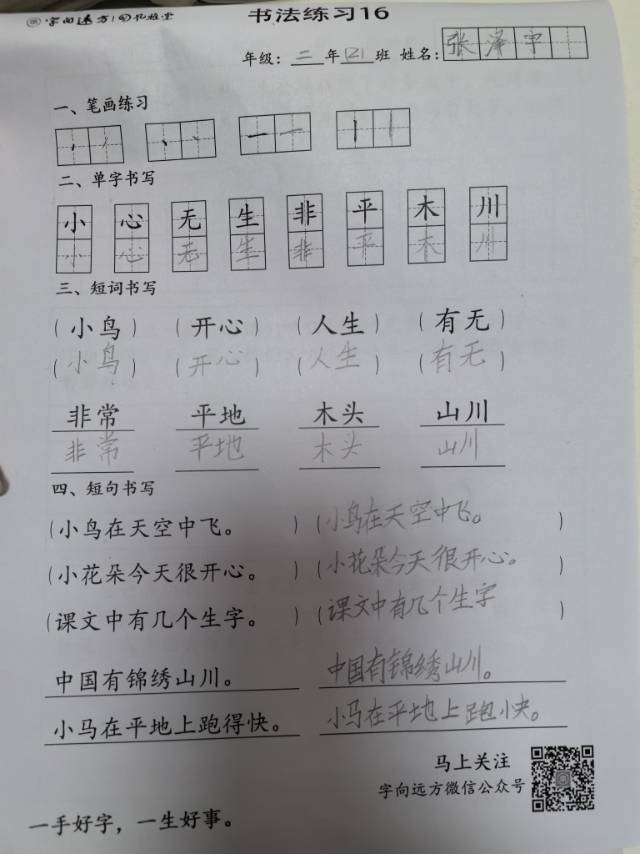 字向远方
书法练习16
年级：二年(2)班 姓名：张泽宇
一、笔画练习
二、单字书写
小 心 无 生 非 平 木 川
小 心 无 生 非 平 木 川
三、短词书写
（小鸟） （开心） （人生） （有无）
（小鸟） （开心） （人生） （有无）
非常 平地 木头 山川
非常 平地 木头 山川
四、短句书写
（小鸟在天空中飞。 ）（小鸟在天空中飞。 ）
（小花朵今天很开心。 ）（小花朵今天很开心。 ）
（课文中有几个生字。 ）（课文中有几个生字 ）
中国有锦绣山川。 中国有锦绣山川。
小马在平地上跑得快。 小马在平地上跑快。
马上关注
字向远方微信公众号
一手好字，一生好事。